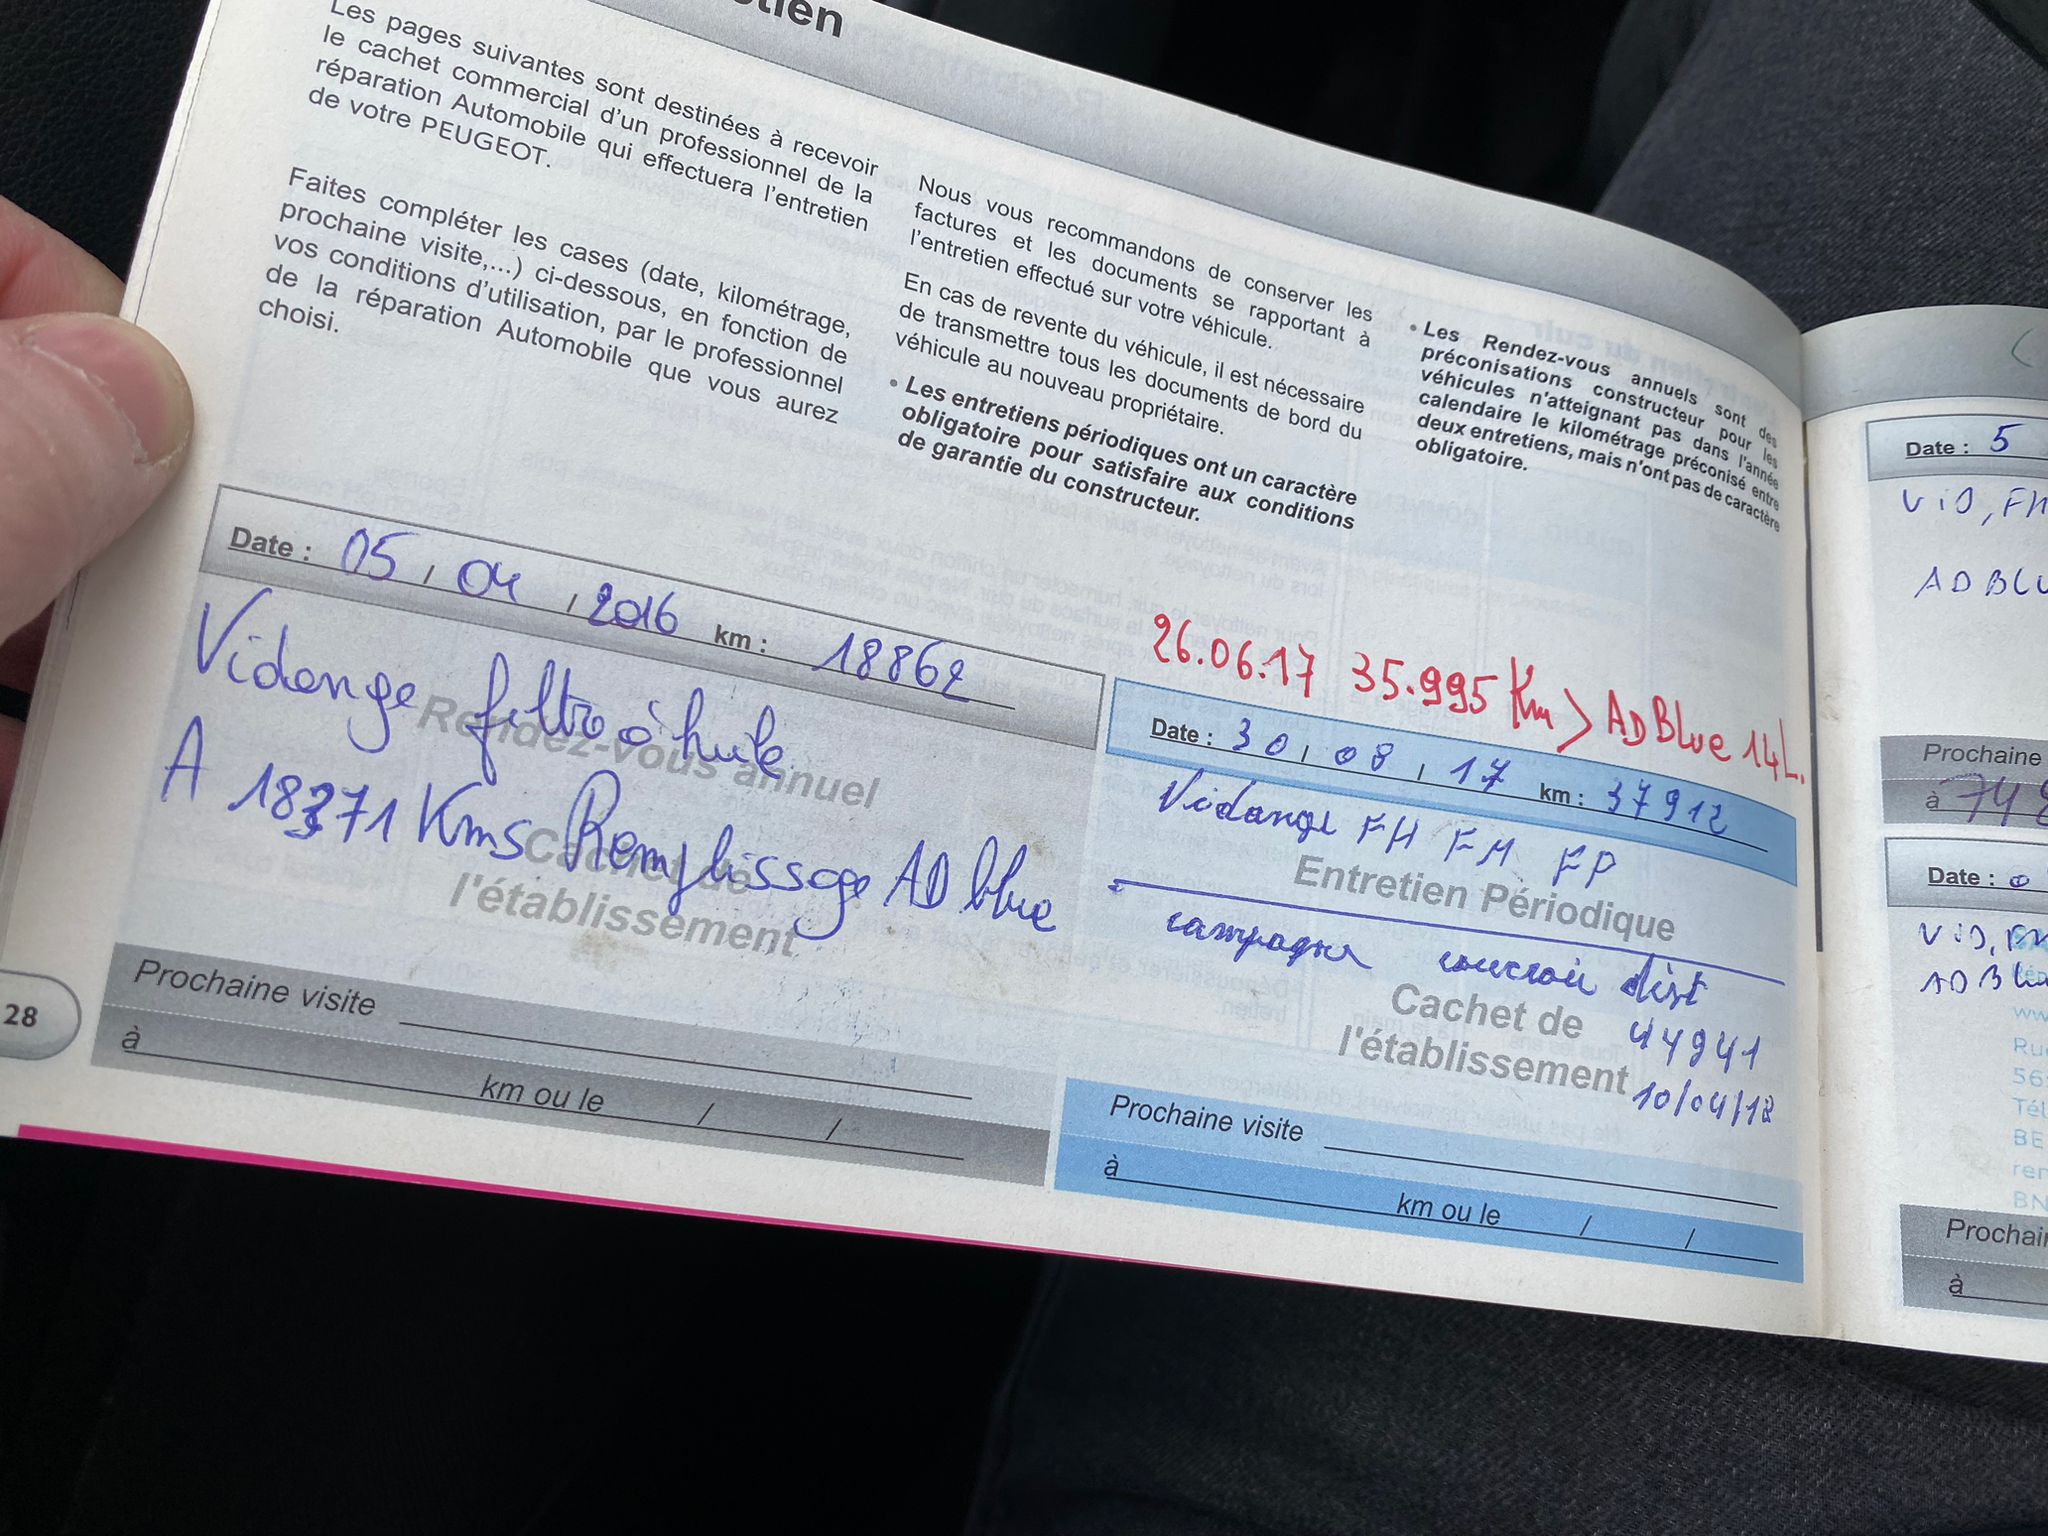 tien
Les pages suivantes sont destinées à recevoir
le cachet commercial d'un professionnel de la
réparation Automobile qui effectuera l'entretien
de votre PEUGEOT.
Faites compléter les cases (date, kilométrage,
prochaine visite,...) ci-dessous, en fonction de
vos conditions d'utilisation, par le professionnel
de la réparation Automobile que vous aurez
choisi.
Nous vous recommandons de conserver les
factures et les documents se rapportant à
l'entretien effectué sur votre véhicule.
En cas de revente du véhicule, il est nécessaire
de transmettre tous les documents de bord du
véhicule au nouveau propriétaire.
• Les entretiens périodiques ont un caractère
obligatoire pour satisfaire aux conditions
de garantie du constructeur.
• Les Rendez-vous annuels sont des
préconisations constructeur pour les
véhicules n'atteignant pas dans l'année
calendaire le kilométrage préconisé entre
deux entretiens, mais n'ont pas de caractère
obligatoire.
Date : 05 / 04 / 2016 km : 18862
Vidange filtre à huile
Rendez-vous annuel
A 18371 Kms Remplissage AD blue
Cachet de
l'établissement
Prochaine visite
à
km ou le / /
28
26.06.17 35.995 Km > AD Blue 14L.
Date : 30 / 08 / 17 km : 37912
Vidange FH FH FP
Entretien Périodique
campagne courroie dist
Cachet de
l'établissement
44941
10/04/18
Prochaine visite
à
km ou le / /
Date : 5
VID, FH
AD BLU
Prochaine
à 748
Date : 0
VID, FH
AD Blu
Rép
ww
Rue
56
Tél
BE
BN
Prochai
à